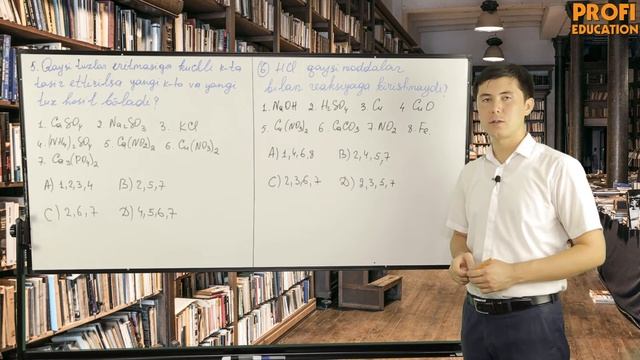 5. Qaysi tuzlar eritmasiga kuchli k-ta
tasir ettirilsa yangi k-ta va yangi
tuz hosil boladi?
1. CaSO₄ 2. Na₂SO₃ 3. KCl
4. (NH₄)₂SO₄ 5. Ca(NO₂)₂ 6. Cu(NO₃)₂
7. Ca₃(PO₄)₂
A) 1,2,3,4 B) 2,5,7
C) 2,6,7 D) 4,5,6,7
6 HCl qaysi moddalar
bilan reaksiyaga kirishmaydi?
1. NaOH 2. H₂SO₄ 3. Cu 4. CaO
5. Cu(NO₃)₂ 6. CaCO₃ 7. NO₂ 8. Fe.
A) 1,4,6,8 B) 2,4,5,7
C) 2,3,6,7 D) 2,3,5,7
PROFI
EDUCATION